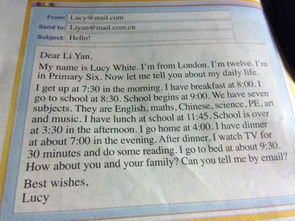 From: Lucy@mail.com
Send to: Liyan@mail.com.cn
Subject: Hello!
Dear Li Yan,
My name is Lucy White. I'm from London. I'm twelve. I'm
in Primary Six. Now let me tell you about my daily life.
I get up at 7:30 in the morning. I have breakfast at 8:00. I
go to school at 8:30. School begins at 9:00. We have seven
subjects. They are English, maths, Chinese, science, PE, art
and music. I have lunch at school at 11:45. School is over
at 3:30 in the afternoon. I go home at 4:00. I have dinner
at about 7:00 in the evening. After dinner, I watch TV for
30 minutes and do some reading. I go to bed at about 9:30.
How about you and your family? Can you tell me by email?
Best wishes,
Lucy